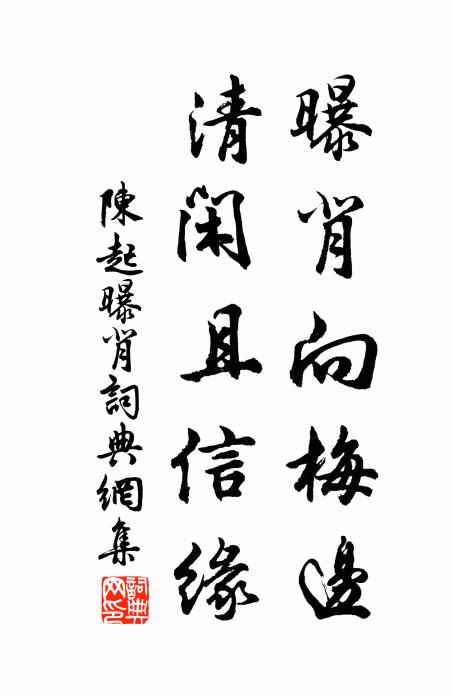 曝背向梅邊
清閑且信緣
陳起曝背詞典網集
詞典網印